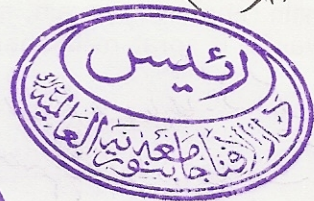 رئیس
دار الافتاء جامعہ بنوریہ العالمیہ